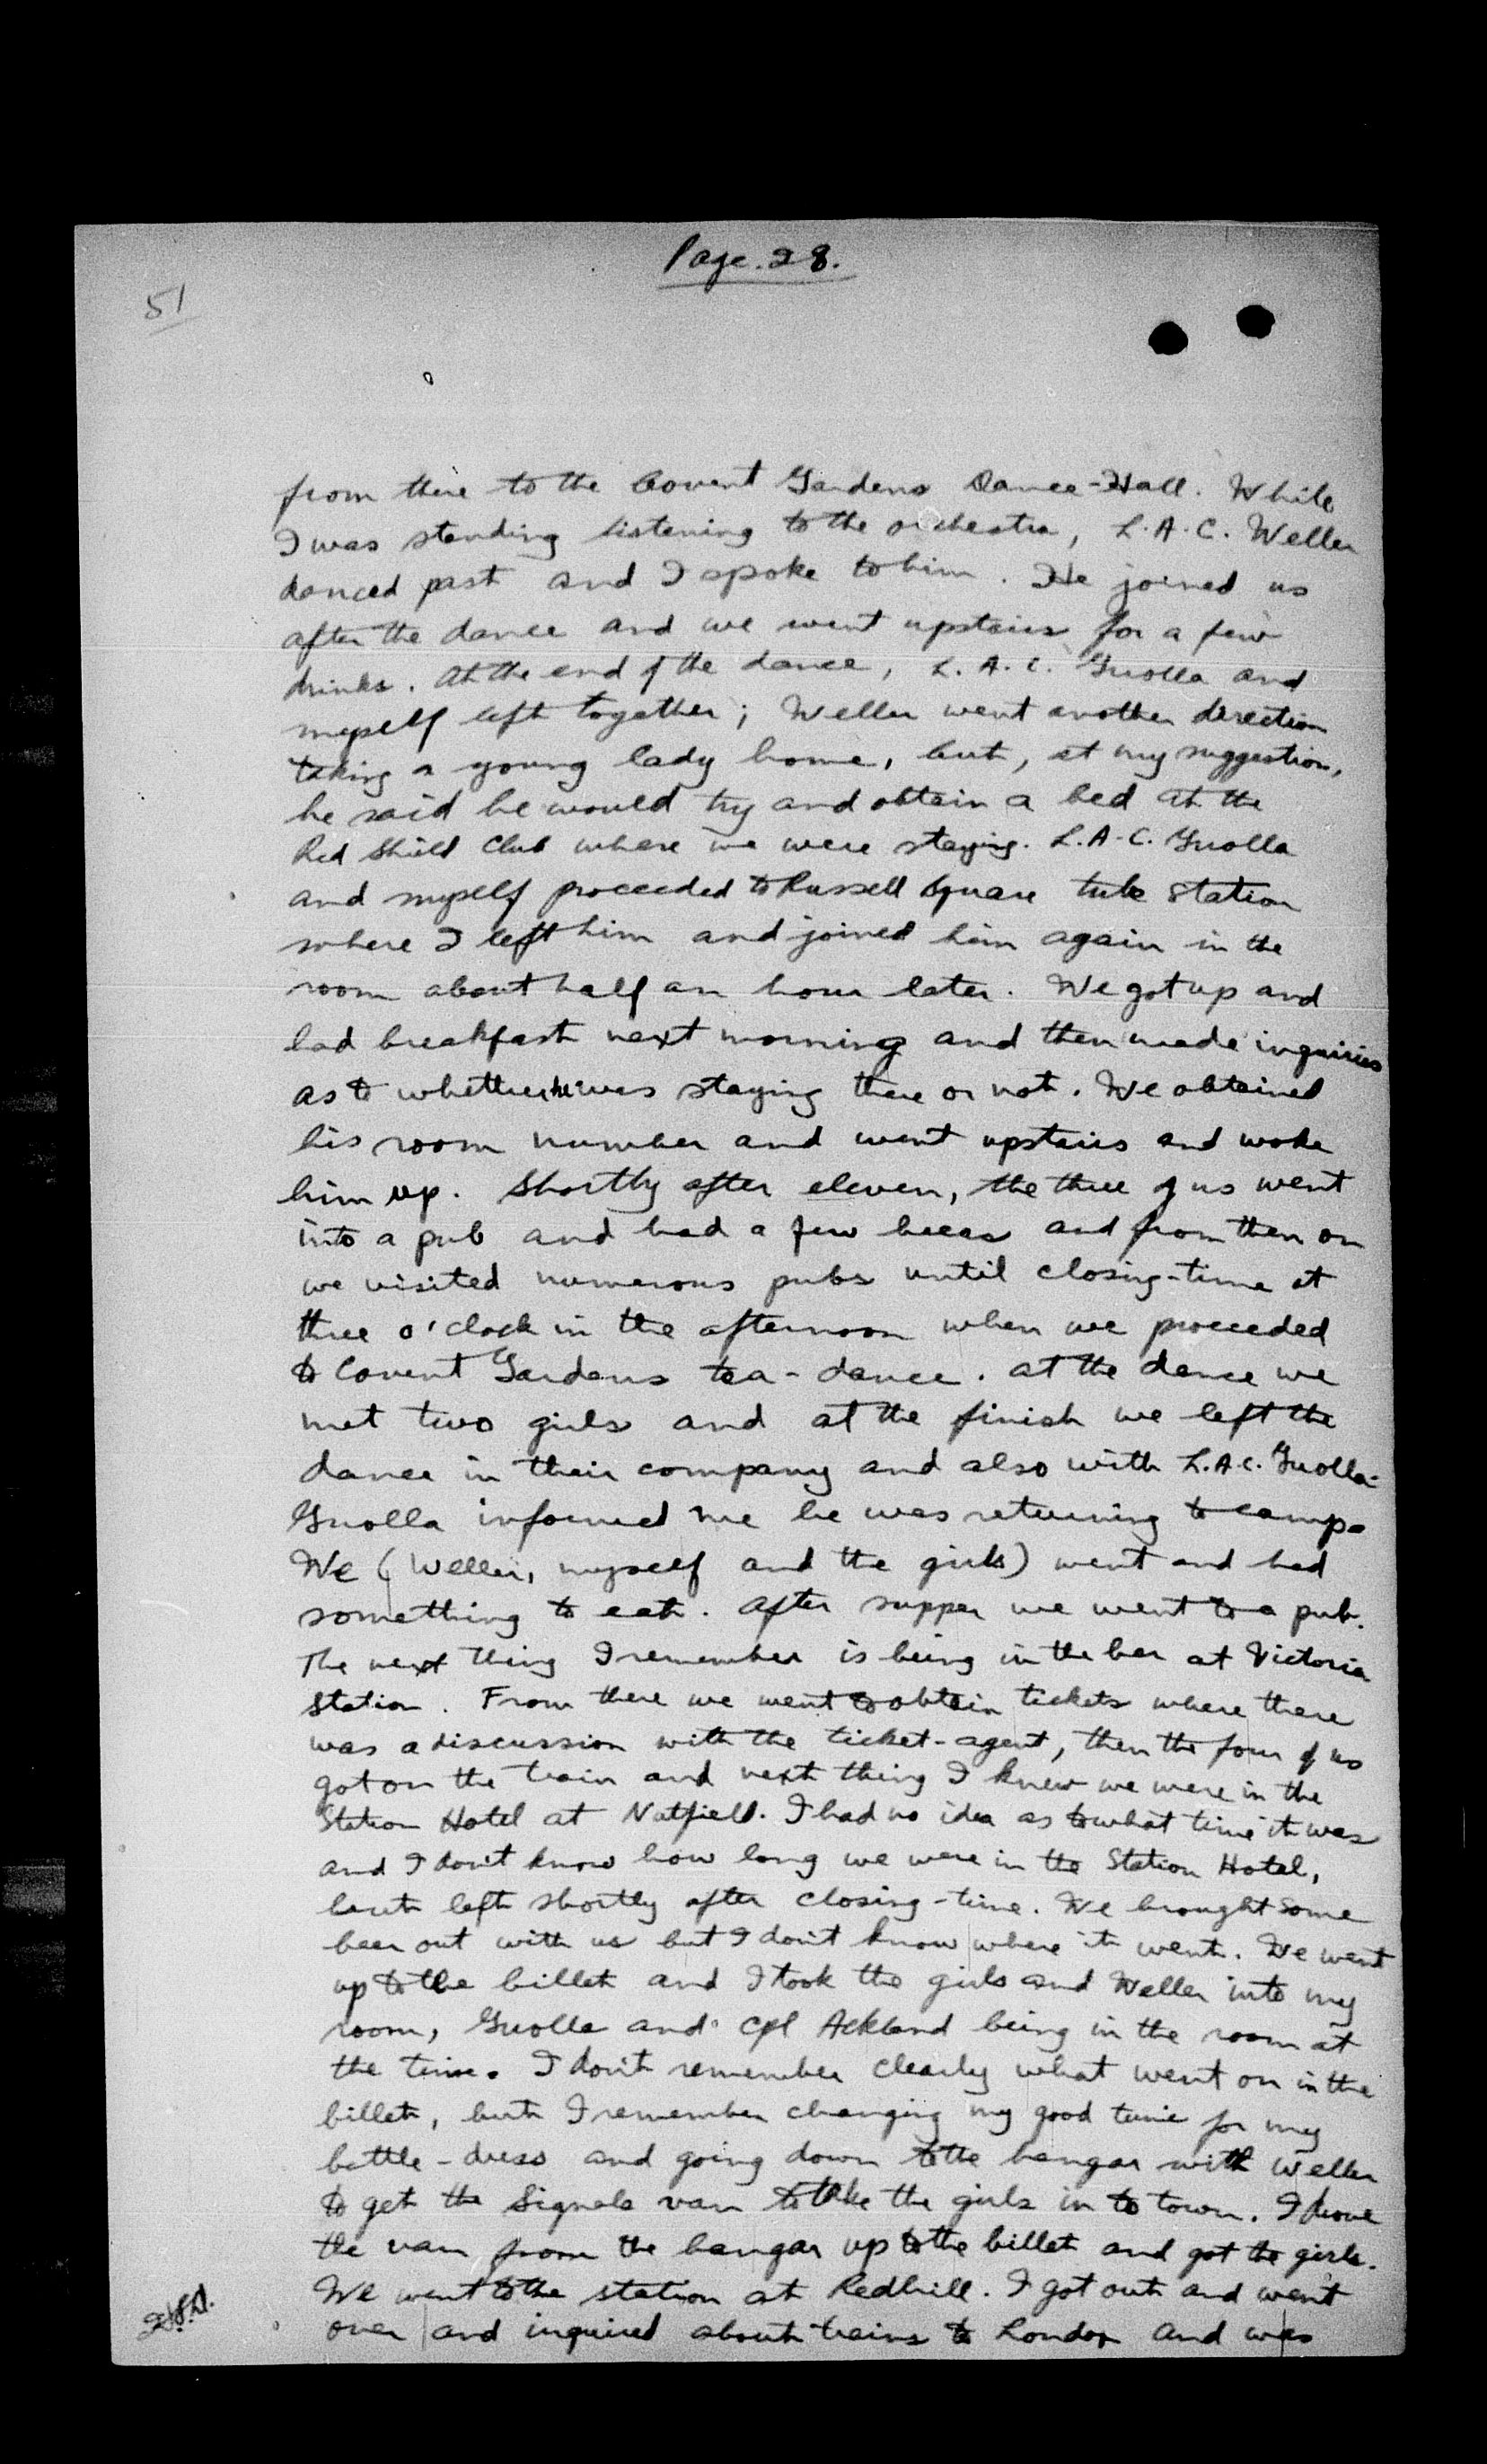 Page. 28.
51
from there to the Covent Gardens Dance-Hall. While
I was standing listening to the orchestra, L.A.C. Weller
danced past and I spoke to him. He joined us
after the dance and we went upstairs for a few
drinks. At the end of the dance, L.A.C. Guolla and
myself left together; Weller went another direction
taking a young lady home, but, at my suggestion,
he said he would try and obtain a bed at the
Red Shield Club where we were staying. L.A.C. Guolla
and myself proceeded to Russell Square tube station
where I left him and joined him again in the
room about half an hour later. We got up and
had breakfast next morning and then made inquiries
as to whether he was staying there or not. We obtained
his room number and went upstairs and woke
him up. Shortly after eleven, the three of us went
into a pub and had a few beers and from then on
we visited numerous pubs until closing-time at
three o'clock in the afternoon when we proceeded
to Covent Gardens tea-dance. At the dance we
met two girls and at the finish we left the
dance in their company and also with L.A.C. Guolla.
Guolla informed me he was returning to camp.
We (Weller, myself and the girls) went and had
something to eat. After supper we went to a pub.
The next thing I remember is being in the bar at Victoria
Station. From there we went to obtain tickets where there
was a discussion with the ticket-agent, then the four of us
got on the train and next thing I knew we were in the
Station Hotel at Nutfield. I had no idea as to what time it was
and I don't know how long we were in the Station Hotel,
but left shortly after closing-time. We brought some
beer out with us but I don't know where it went. We went
up to the billet and I took the girls and Weller into my
room, Guolla and Cpl Ackland being in the room at
the time. I don't remember clearly what went on in the
billet, but I remember changing my good tunic for my
battle-dress and going down to the hangar with Weller
to get the Signals van to take the girls in to town. I drove
the van from the hangar up to the billet and got the girls.
We went to the station at Redhill. I got out and went
over and inquired about trains to London and was